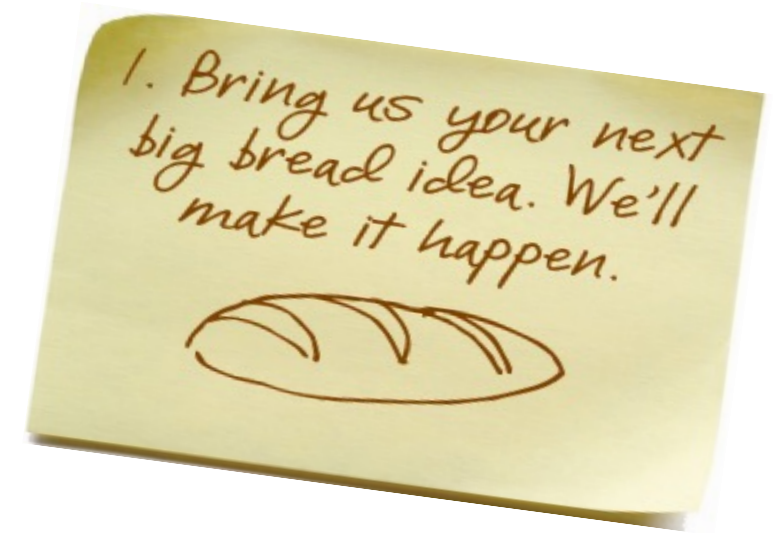 1. Bring us your next
big bread idea. We'll
make it happen.